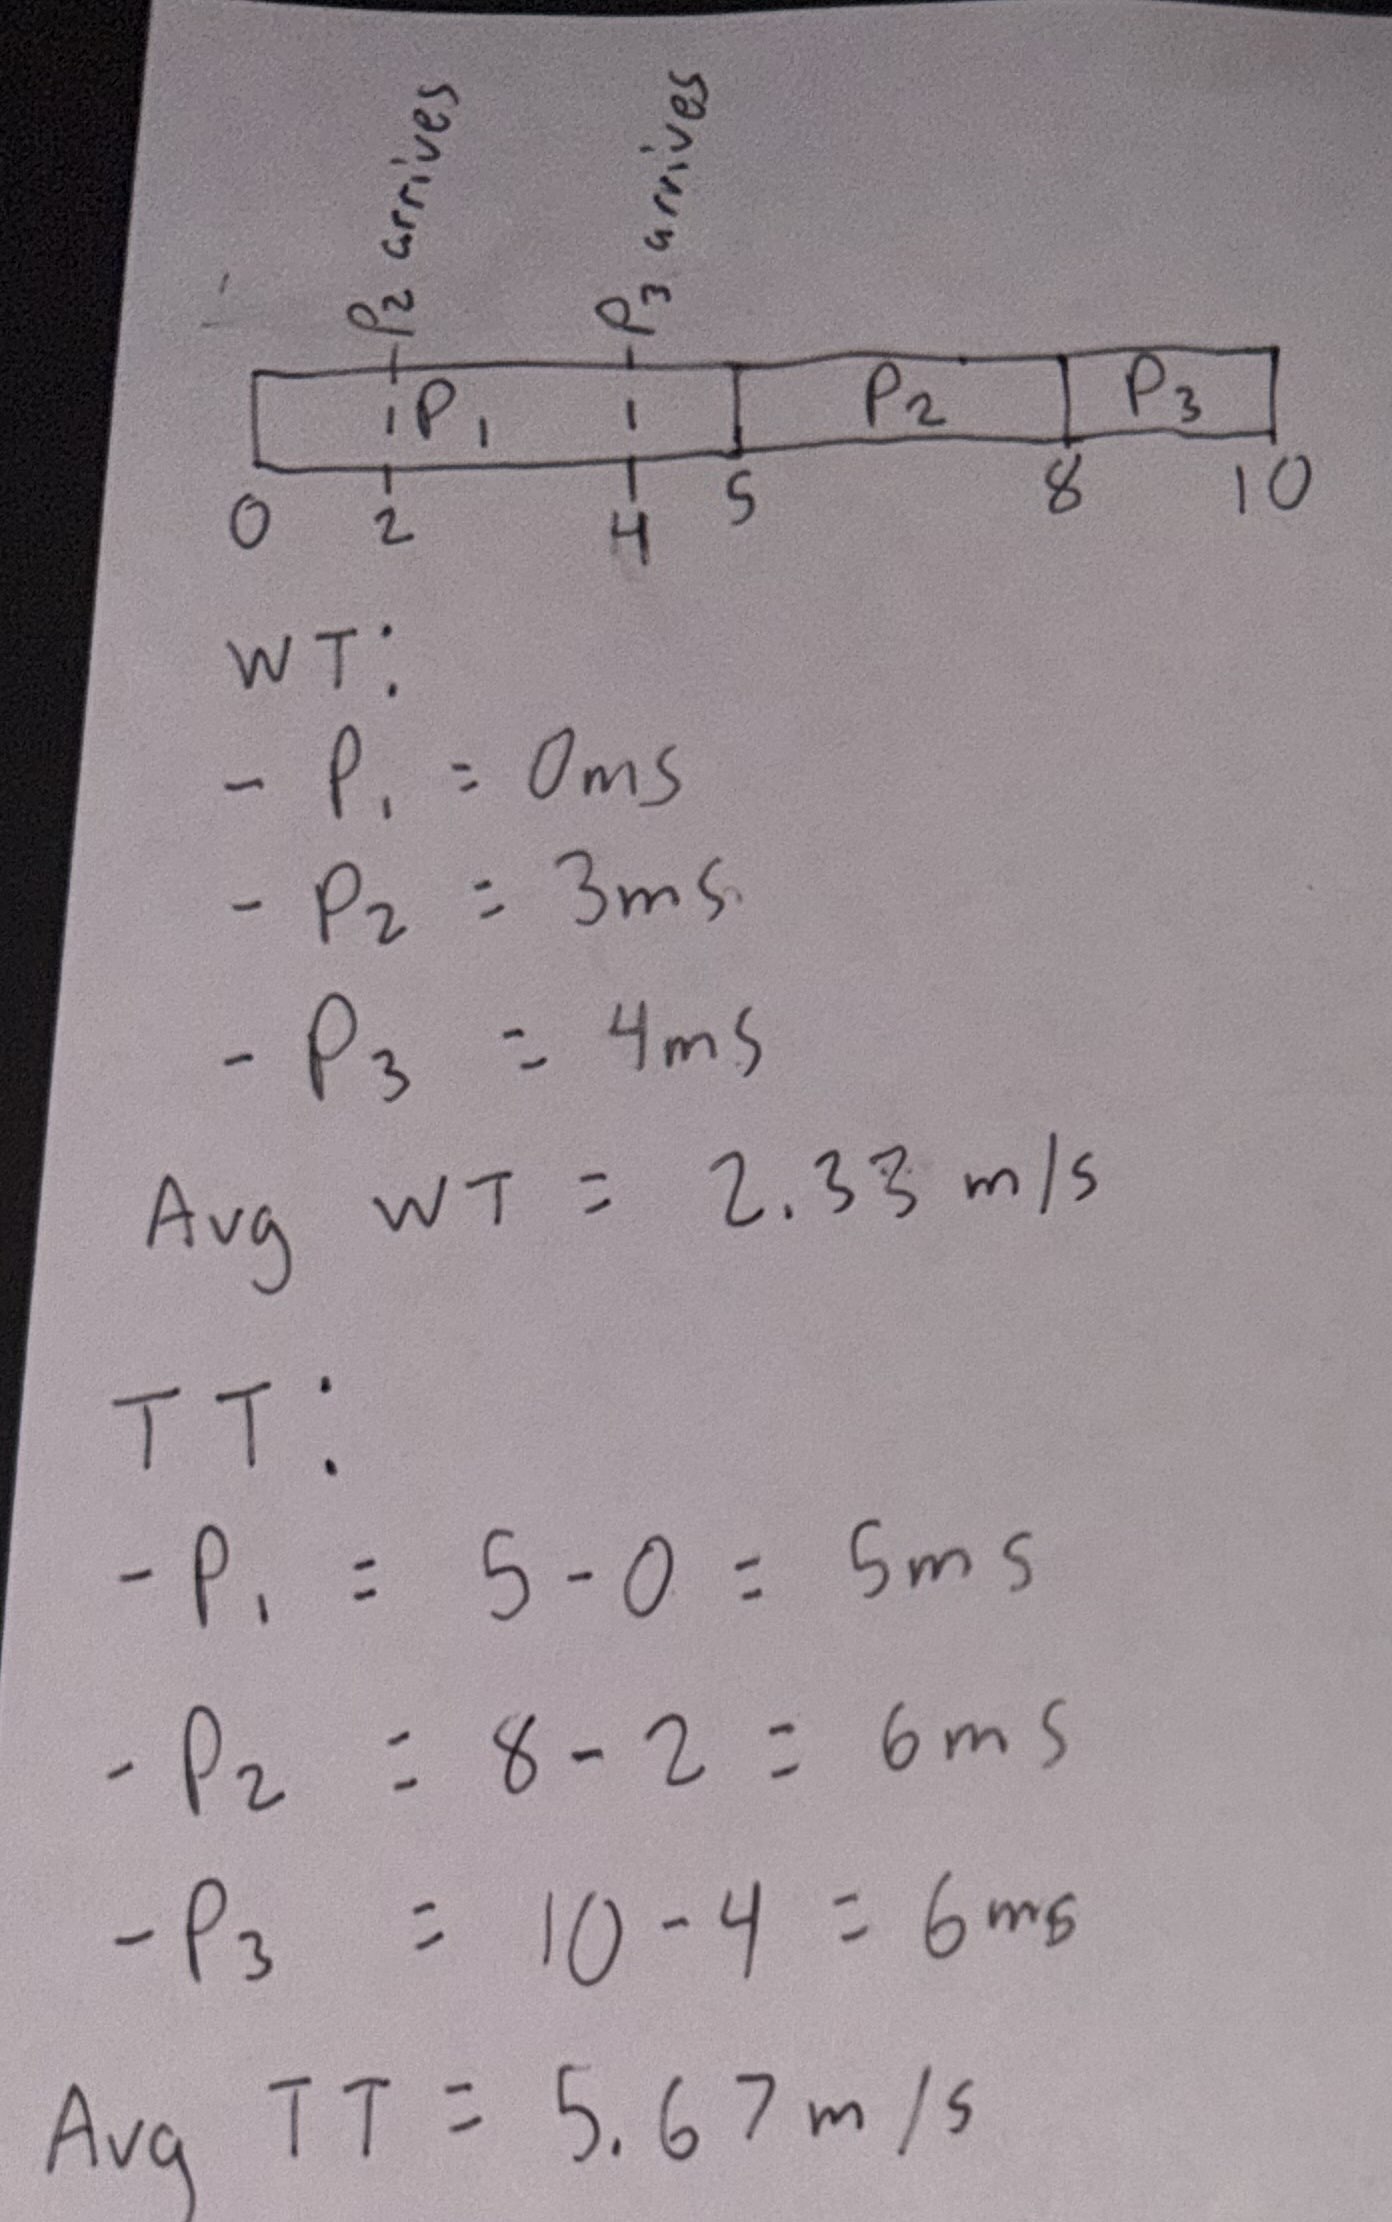 P2 arrives
P3 arrives
P1 P2 P3
0 2 4 5 8 10
WT:
- P1 = 0ms
- P2 = 3ms
- P3 = 4ms
Avg WT = 2.33 m/s
TT:
- P1 = 5-0 = 5ms
- P2 = 8-2 = 6ms
- P3 = 10-4 = 6ms
Avg TT = 5.67 m/s